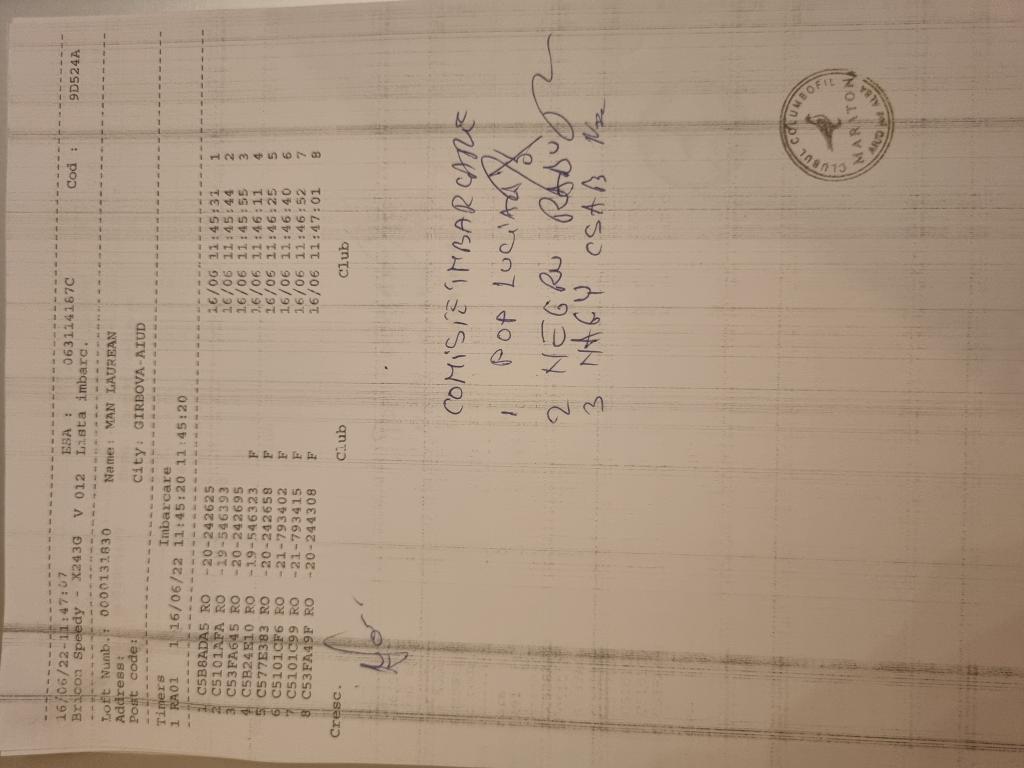 16/06/22-11:47:07
Bricon Speedy - X243G V 012 ESA : 063114167C Cod : 9D524A
Lista imbarc.
Loft Numb.: 0000131830 Name: MAN LAUREAN
Address:
Post code: City: GIRBOVA-AIUD
Timers Imbarcare
1 RA01 1 16/06/22 11:45:20 11:45:20
1 C5B8ADA5 RO -20-242625 16/06 11:45:31 1
2 C5101AFA RO -19-546393 16/06 11:45:44 2
3 C53FA645 RO -20-242695 16/06 11:45:55 3
4 C5B24E10 RO -19-546323 F 16/06 11:46:11 4
5 C577E383 RO -20-242658 F 16/06 11:46:25 5
6 C5101CF6 RO -21-793402 F 16/06 11:46:40 6
7 C5101C99 RO -21-793415 F 16/06 11:46:52 7
8 C53FA49F RO -20-244308 F 16/06 11:47:01 8
Cresc. Club Club
COMISIE IMBARCARE
1 POP LUCIAN
2 NEGRU RADU
3 NAGY CSABA
CLUBUL COLUMBOFIL
MARATON
ALBA